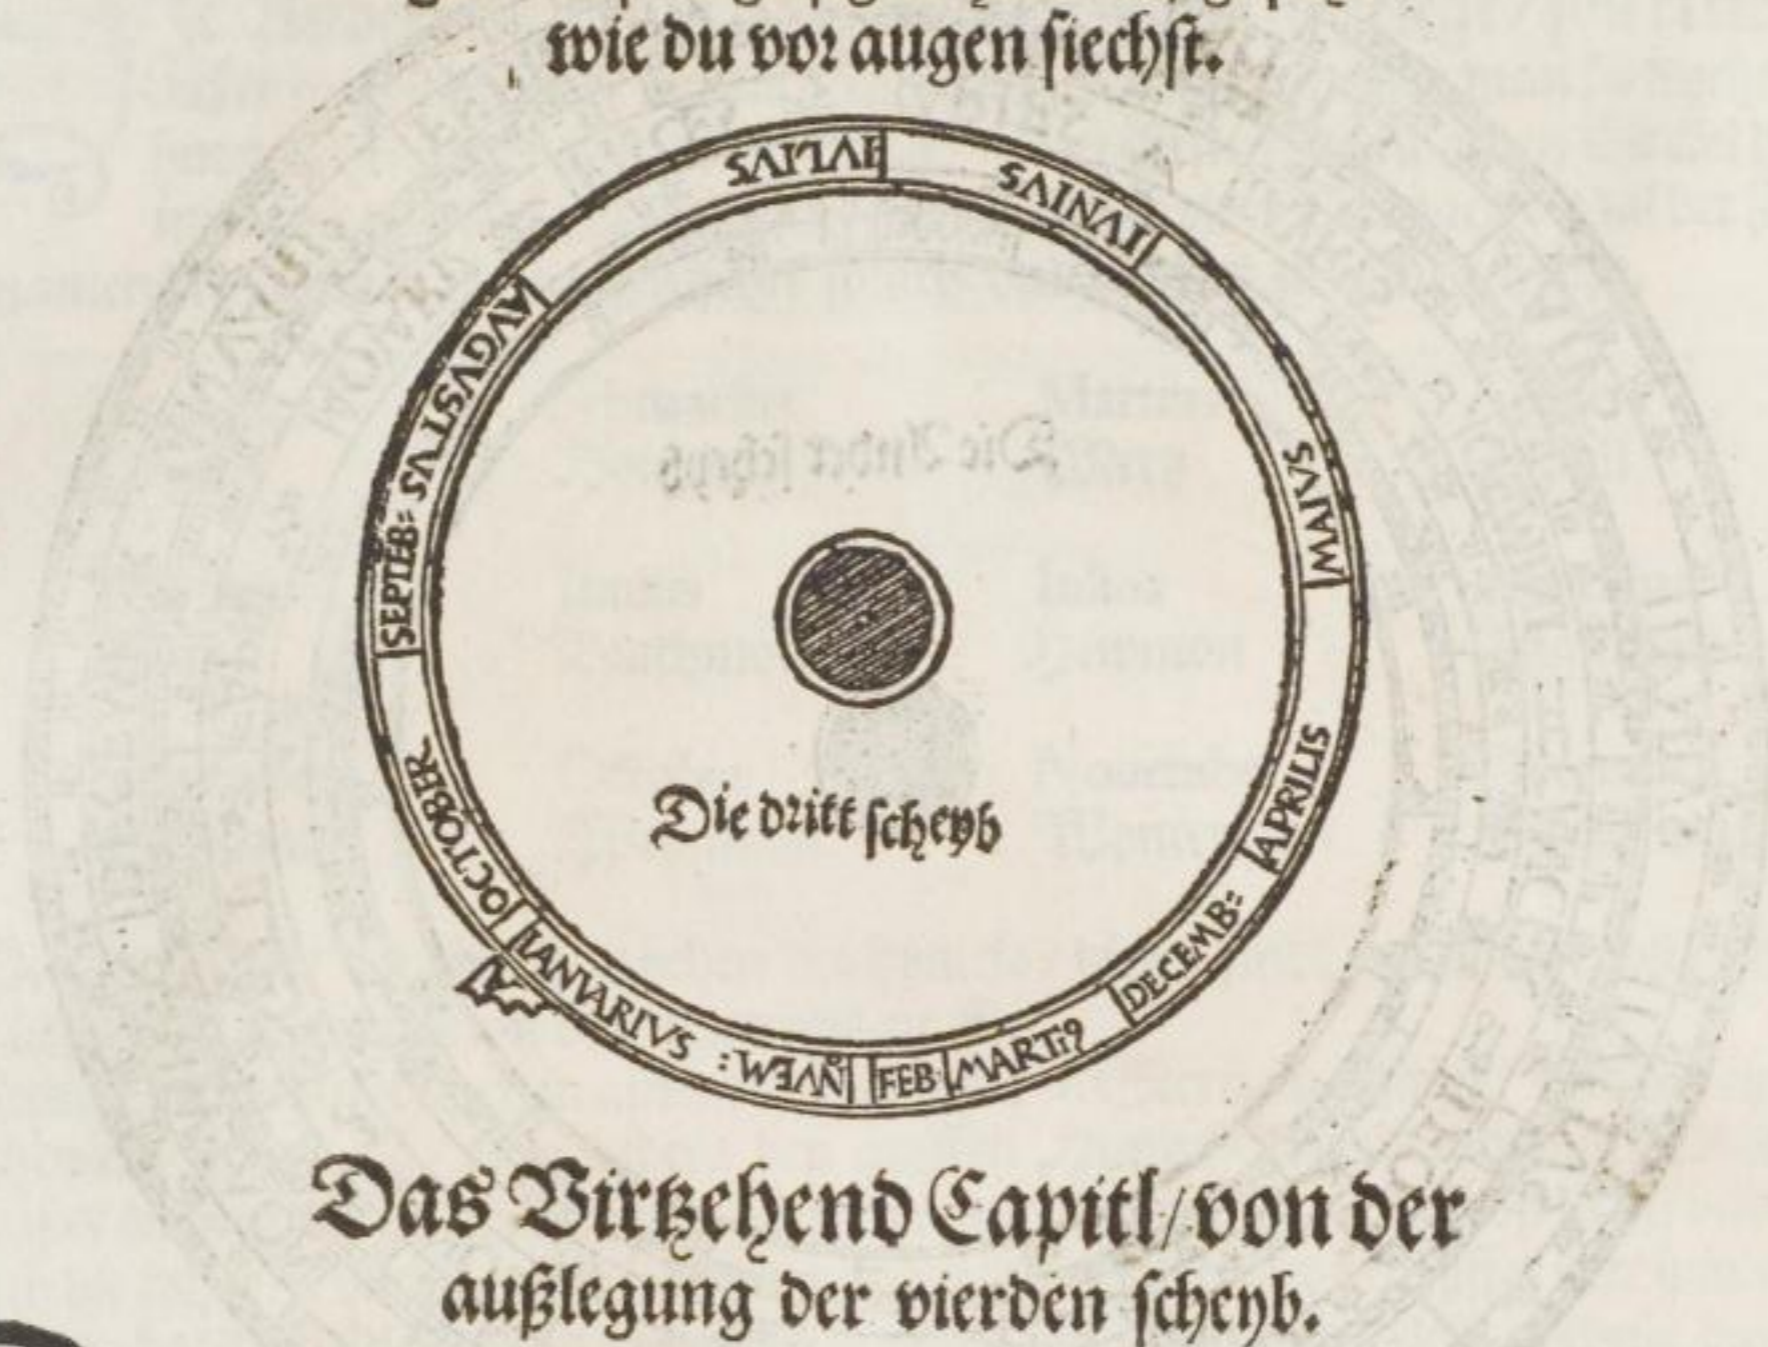 wie du vor augen siechst.
IVLIVS
IVNIVS
MAIVS
APRILIS
DECEMB:
MARTIꝰ
FEB
NVEM:
IANVARIVS
OCTOBER
SEPTEB:
AVGVSTVS
Die dritt scheyb
Das Virtzehend Capitl/von der
außlegung der vierden scheyb.